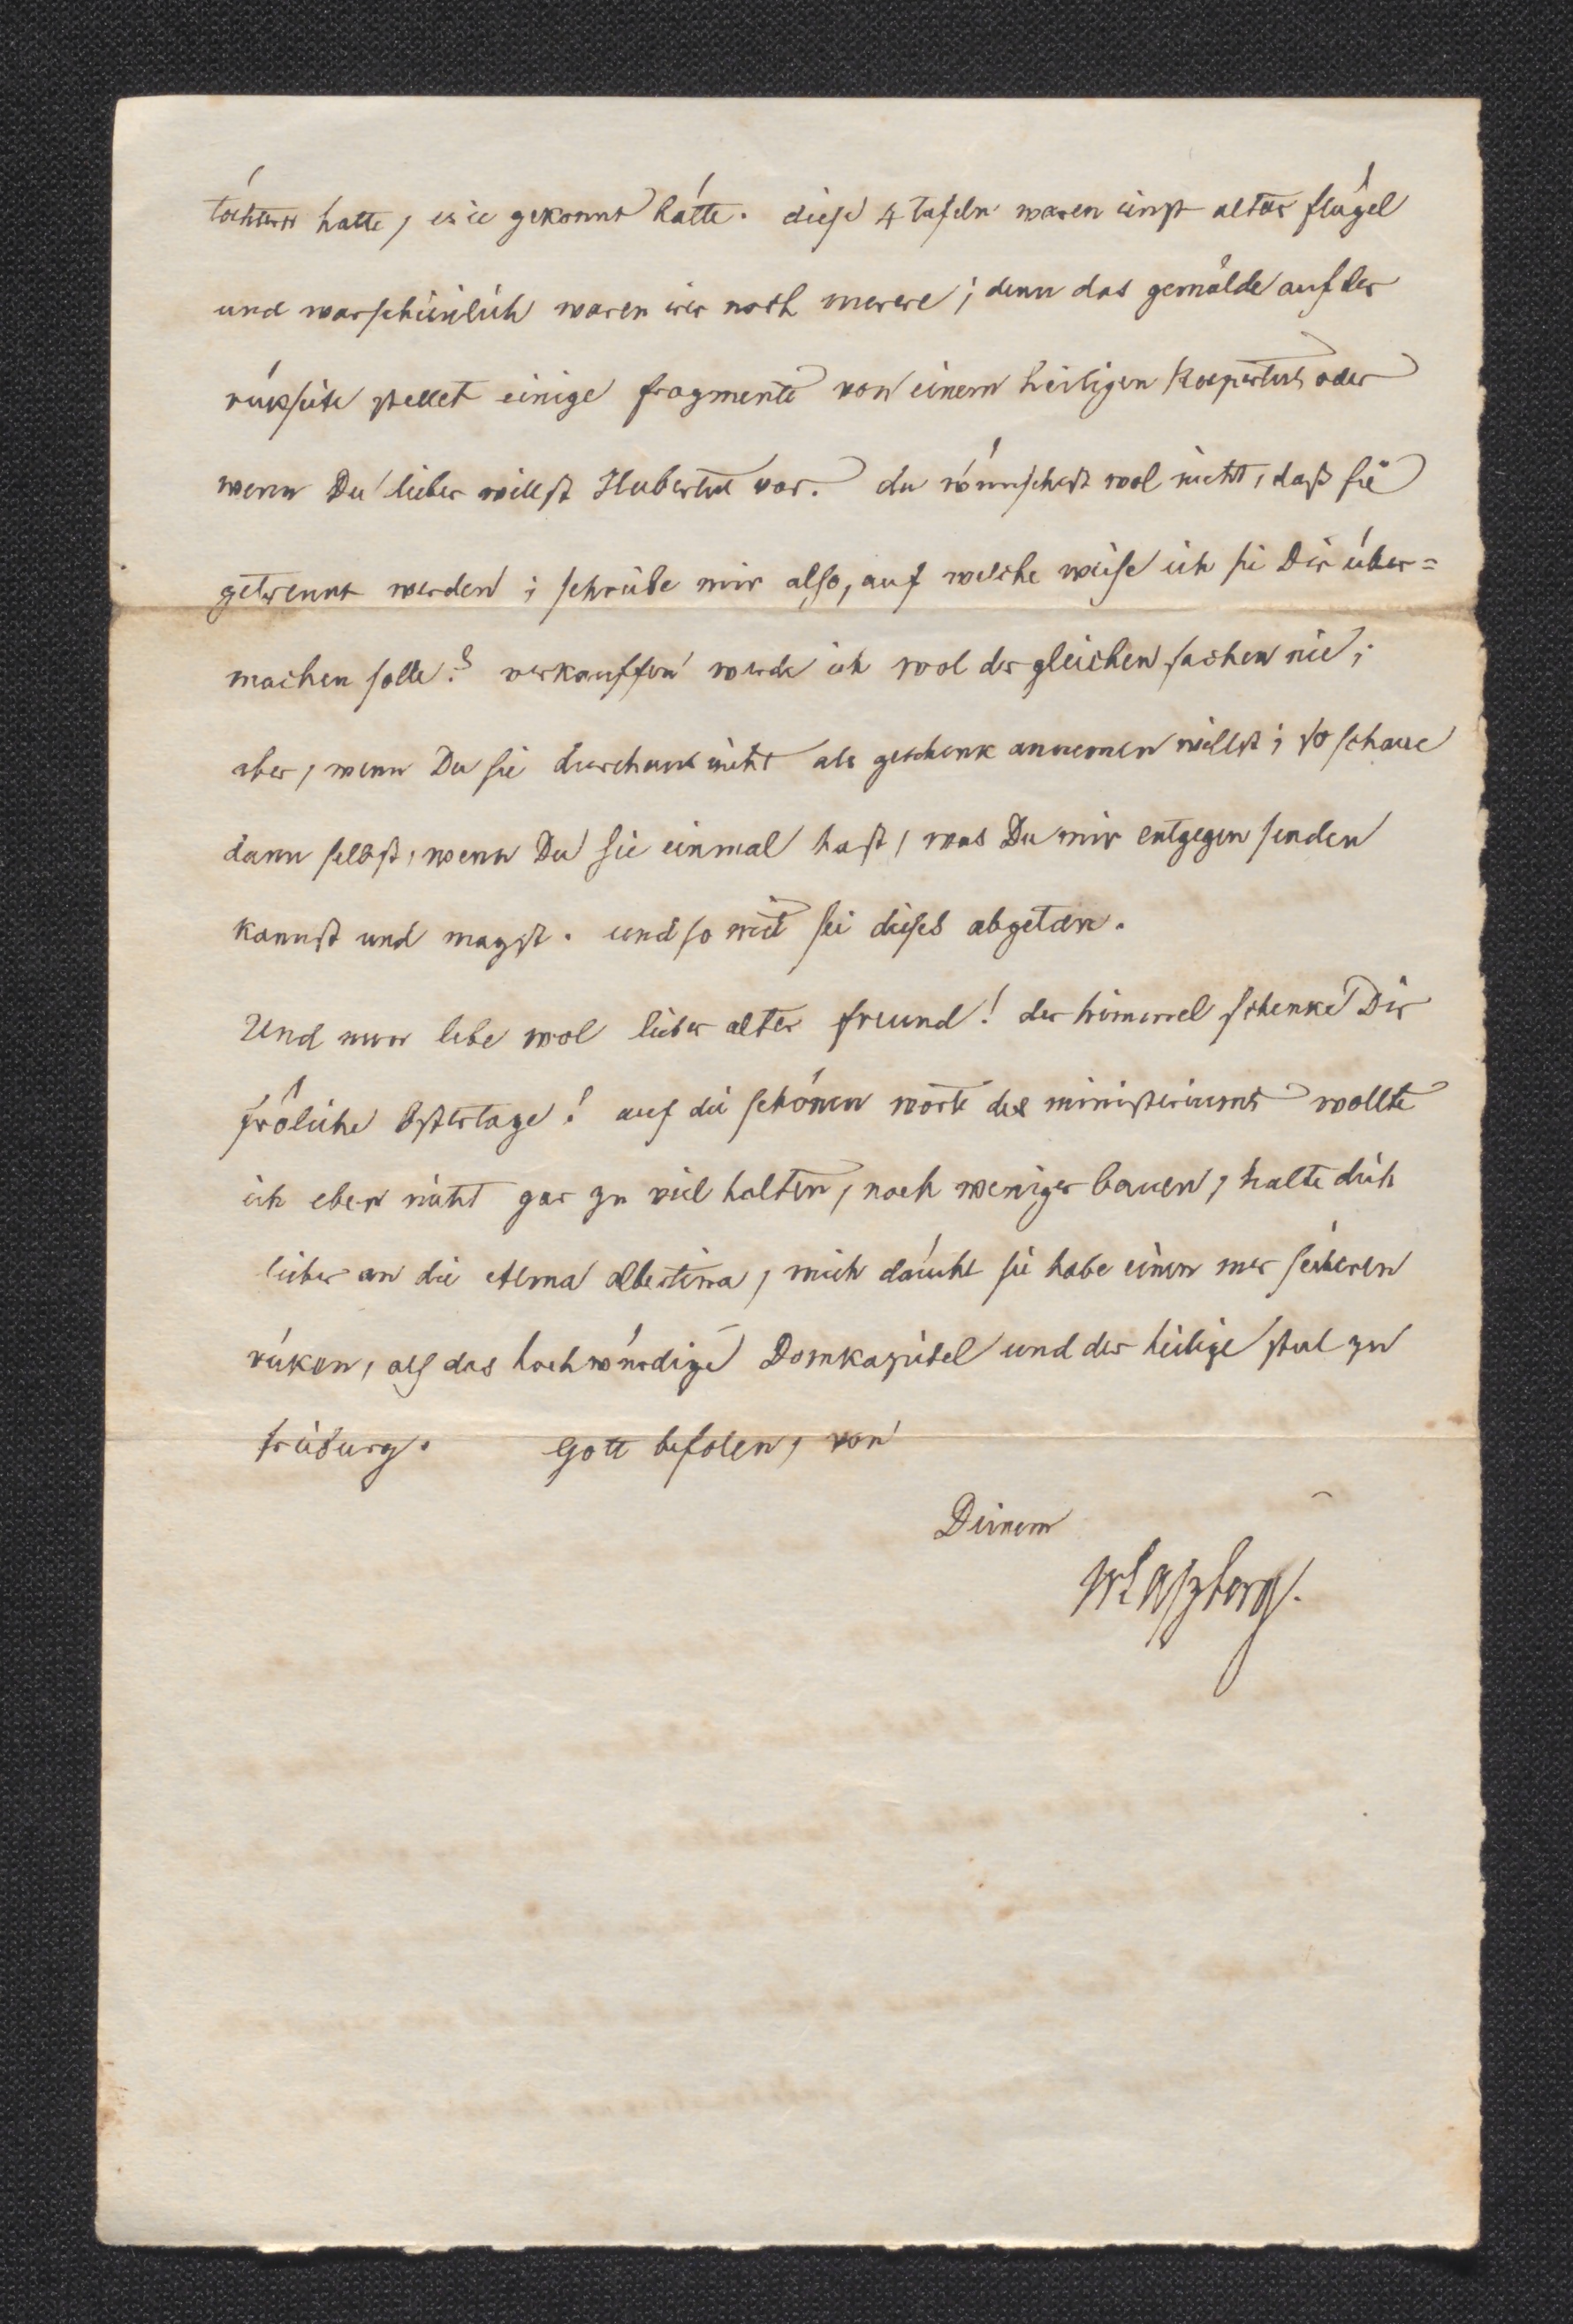 töchtern hatte, es ie gekonnt hätte. diese 4 tafeln waren einst altar flügel
und warscheinlich waren irer noch merere; denn das gemälde auf der
rükseite stellet einige fragmente von einem heiligen Ruepertus oder
wenn Du lieber willst Hubertus vor. du wünschest wol nicht, daß sie
getrennt werden; schreibe mir also, auf welche weise ich sie Dir über=
machen solle? verkauffen werde ich wol der gleichen sachen nie;
aber, wenn Du sie durchaus nicht als geschenk annemen willst; so schaue
dann selbst, wenn Du sie einmal hast, was Du mir entgegen senden
kannst und magst. und so mit sei dises abgetan.
Und nun lebe wol lieber alter freund! der himmel schenke Dir
fröliche Ostertage! auf die schönen worte des ministeriums wollte
ich eben nicht gar zu viel halten, noch weniger bauen, halte dich
lieber an die Alma Albertina, mich däucht sie habe einen mer sicheren
rüken, als das hochwürdige Domkapitel und der heilige stul zu
freiburg. Gott befolen, von
Deinem
Laszberg.